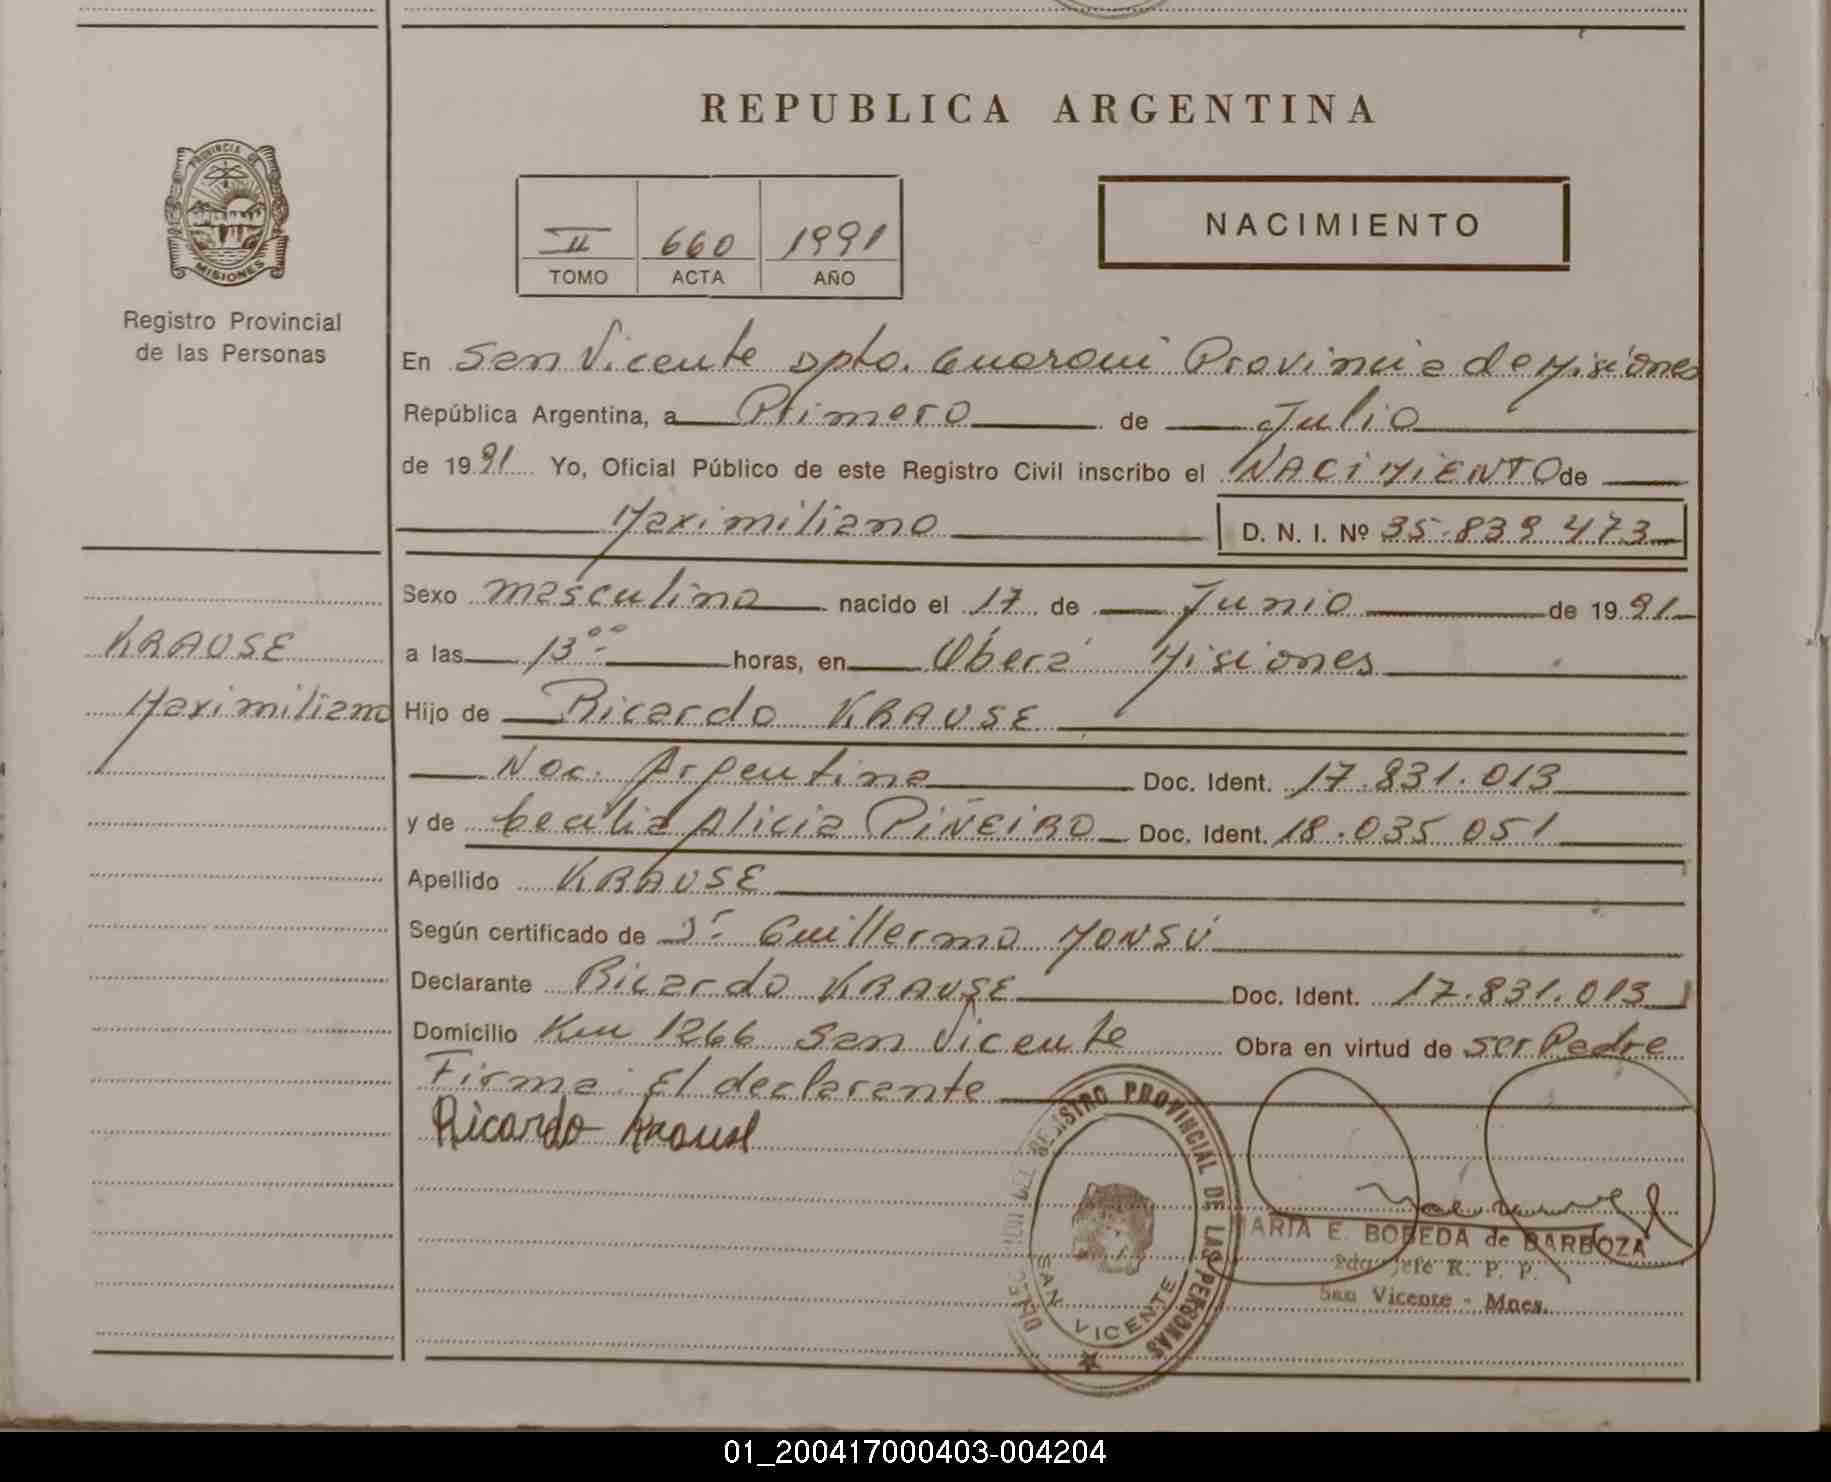 REPUBLICA ARGENTINA
PROVINCIA DE
MISIONES
Registro Provincial
de las Personas
II 660 1991
TOMO ACTA AÑO
NACIMIENTO
En San Vicente Dpto. Guarani Provincia de Misiones
República Argentina, a Primero de Julio
de 1991 Yo, Oficial Público de este Registro Civil inscribo el NACIMIENTO de
Maximiliano D. N. I. Nº 35.839 473
Sexo masculino nacido el 17 de Junio de 1991
KRAUSE
a las 13°° horas, en Oberá Misiones
Maximiliano
Hijo de Ricardo KRAUSE
Nac. Argentina Doc. Ident. 17.831.013
y de Cecilia Alicia PIÑEIRO Doc. Ident. 18.035 051
Apellido KRAUSE
Según certificado de Dr. Guillermo MONSÚ
Declarante Ricardo KRAUSE Doc. Ident. 17.831.013
Domicilio Km 1266 San Vicente Obra en virtud de ser Padre
Firma: El declarante
Ricardo Krause
REGISTRO PROVINCIAL DE LAS PERSONAS
SAN VICENTE
MARIA E. BOBEDA de BARBOZA
Jefe R. P. P.
San Vicente - Mnes.
01_200417000403-004204